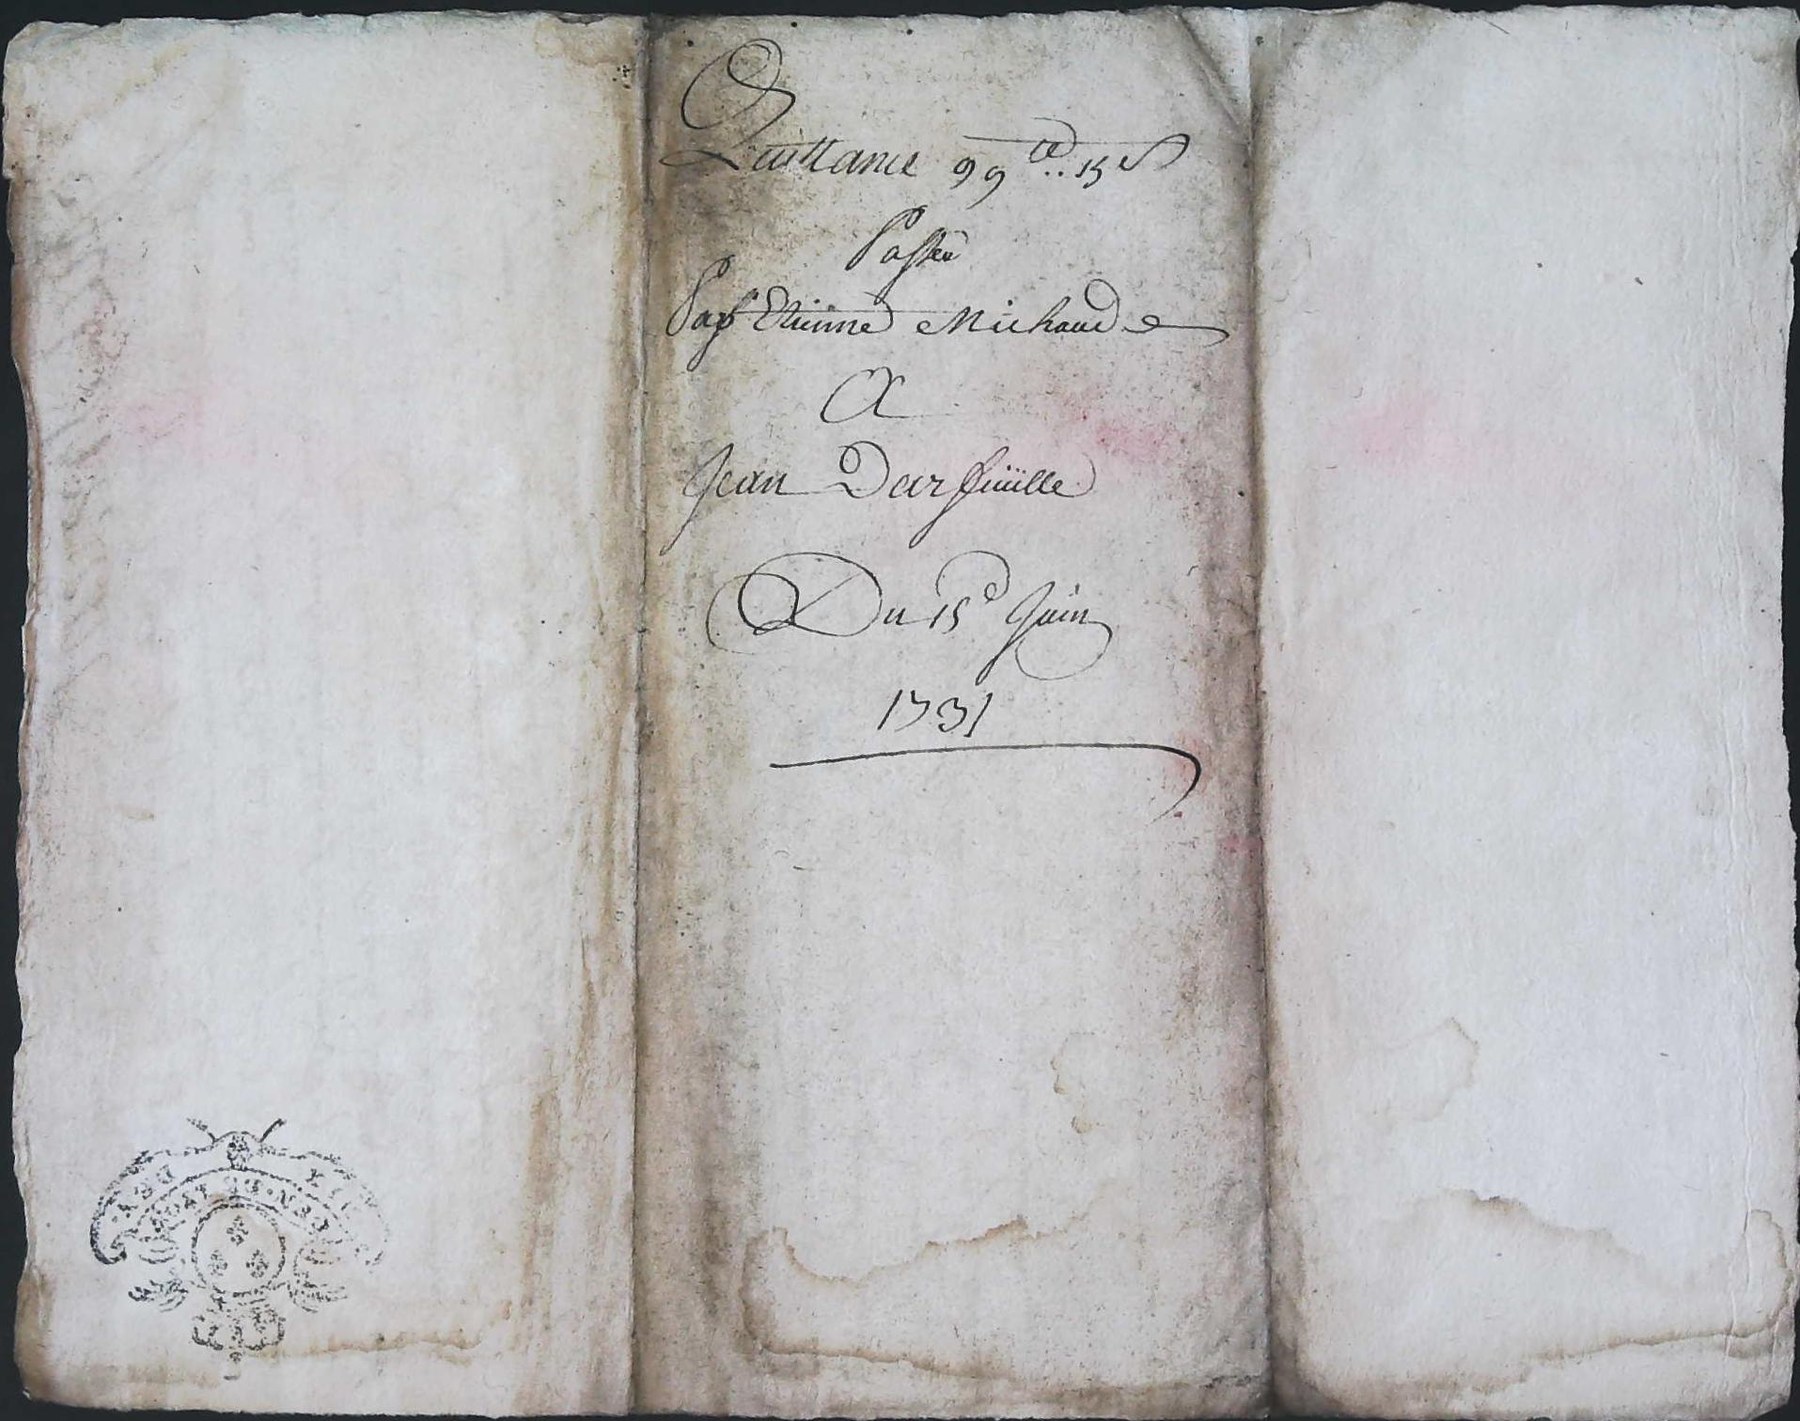 Quittance 99 tt.. 15 s
Passée
Par Etienne Michaud
A
Jean Darfeüille
Du 15e Juin
1731